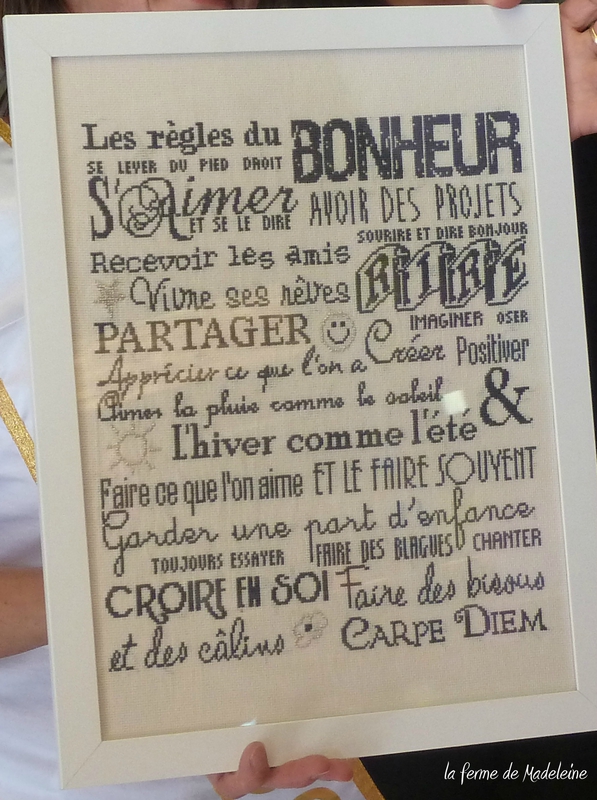 Les règles du BONHEUR
SE LEVER DU PIED DROIT
S'Aimer ET SE LE DIRE
AVOIR DES PROJETS
SOURIRE ET DIRE BONJOUR
Recevoir les amis
RIIIRE
Vivre ses rêves
PARTAGER
IMAGINER OSER
Apprécier ce que l'on a
Créer Positiver
Aimer la pluie comme le soleil
&
l'hiver comme l'été
Faire ce que l'on aime ET LE FAIRE SOUVENT
Garder une part d'enfance
TOUJOURS ESSAYER FAIRE DES BLAGUES CHANTER
CROIRE EN SOI Faire des bisous
et des câlins CARPE DIEM
la ferme de Madeleine